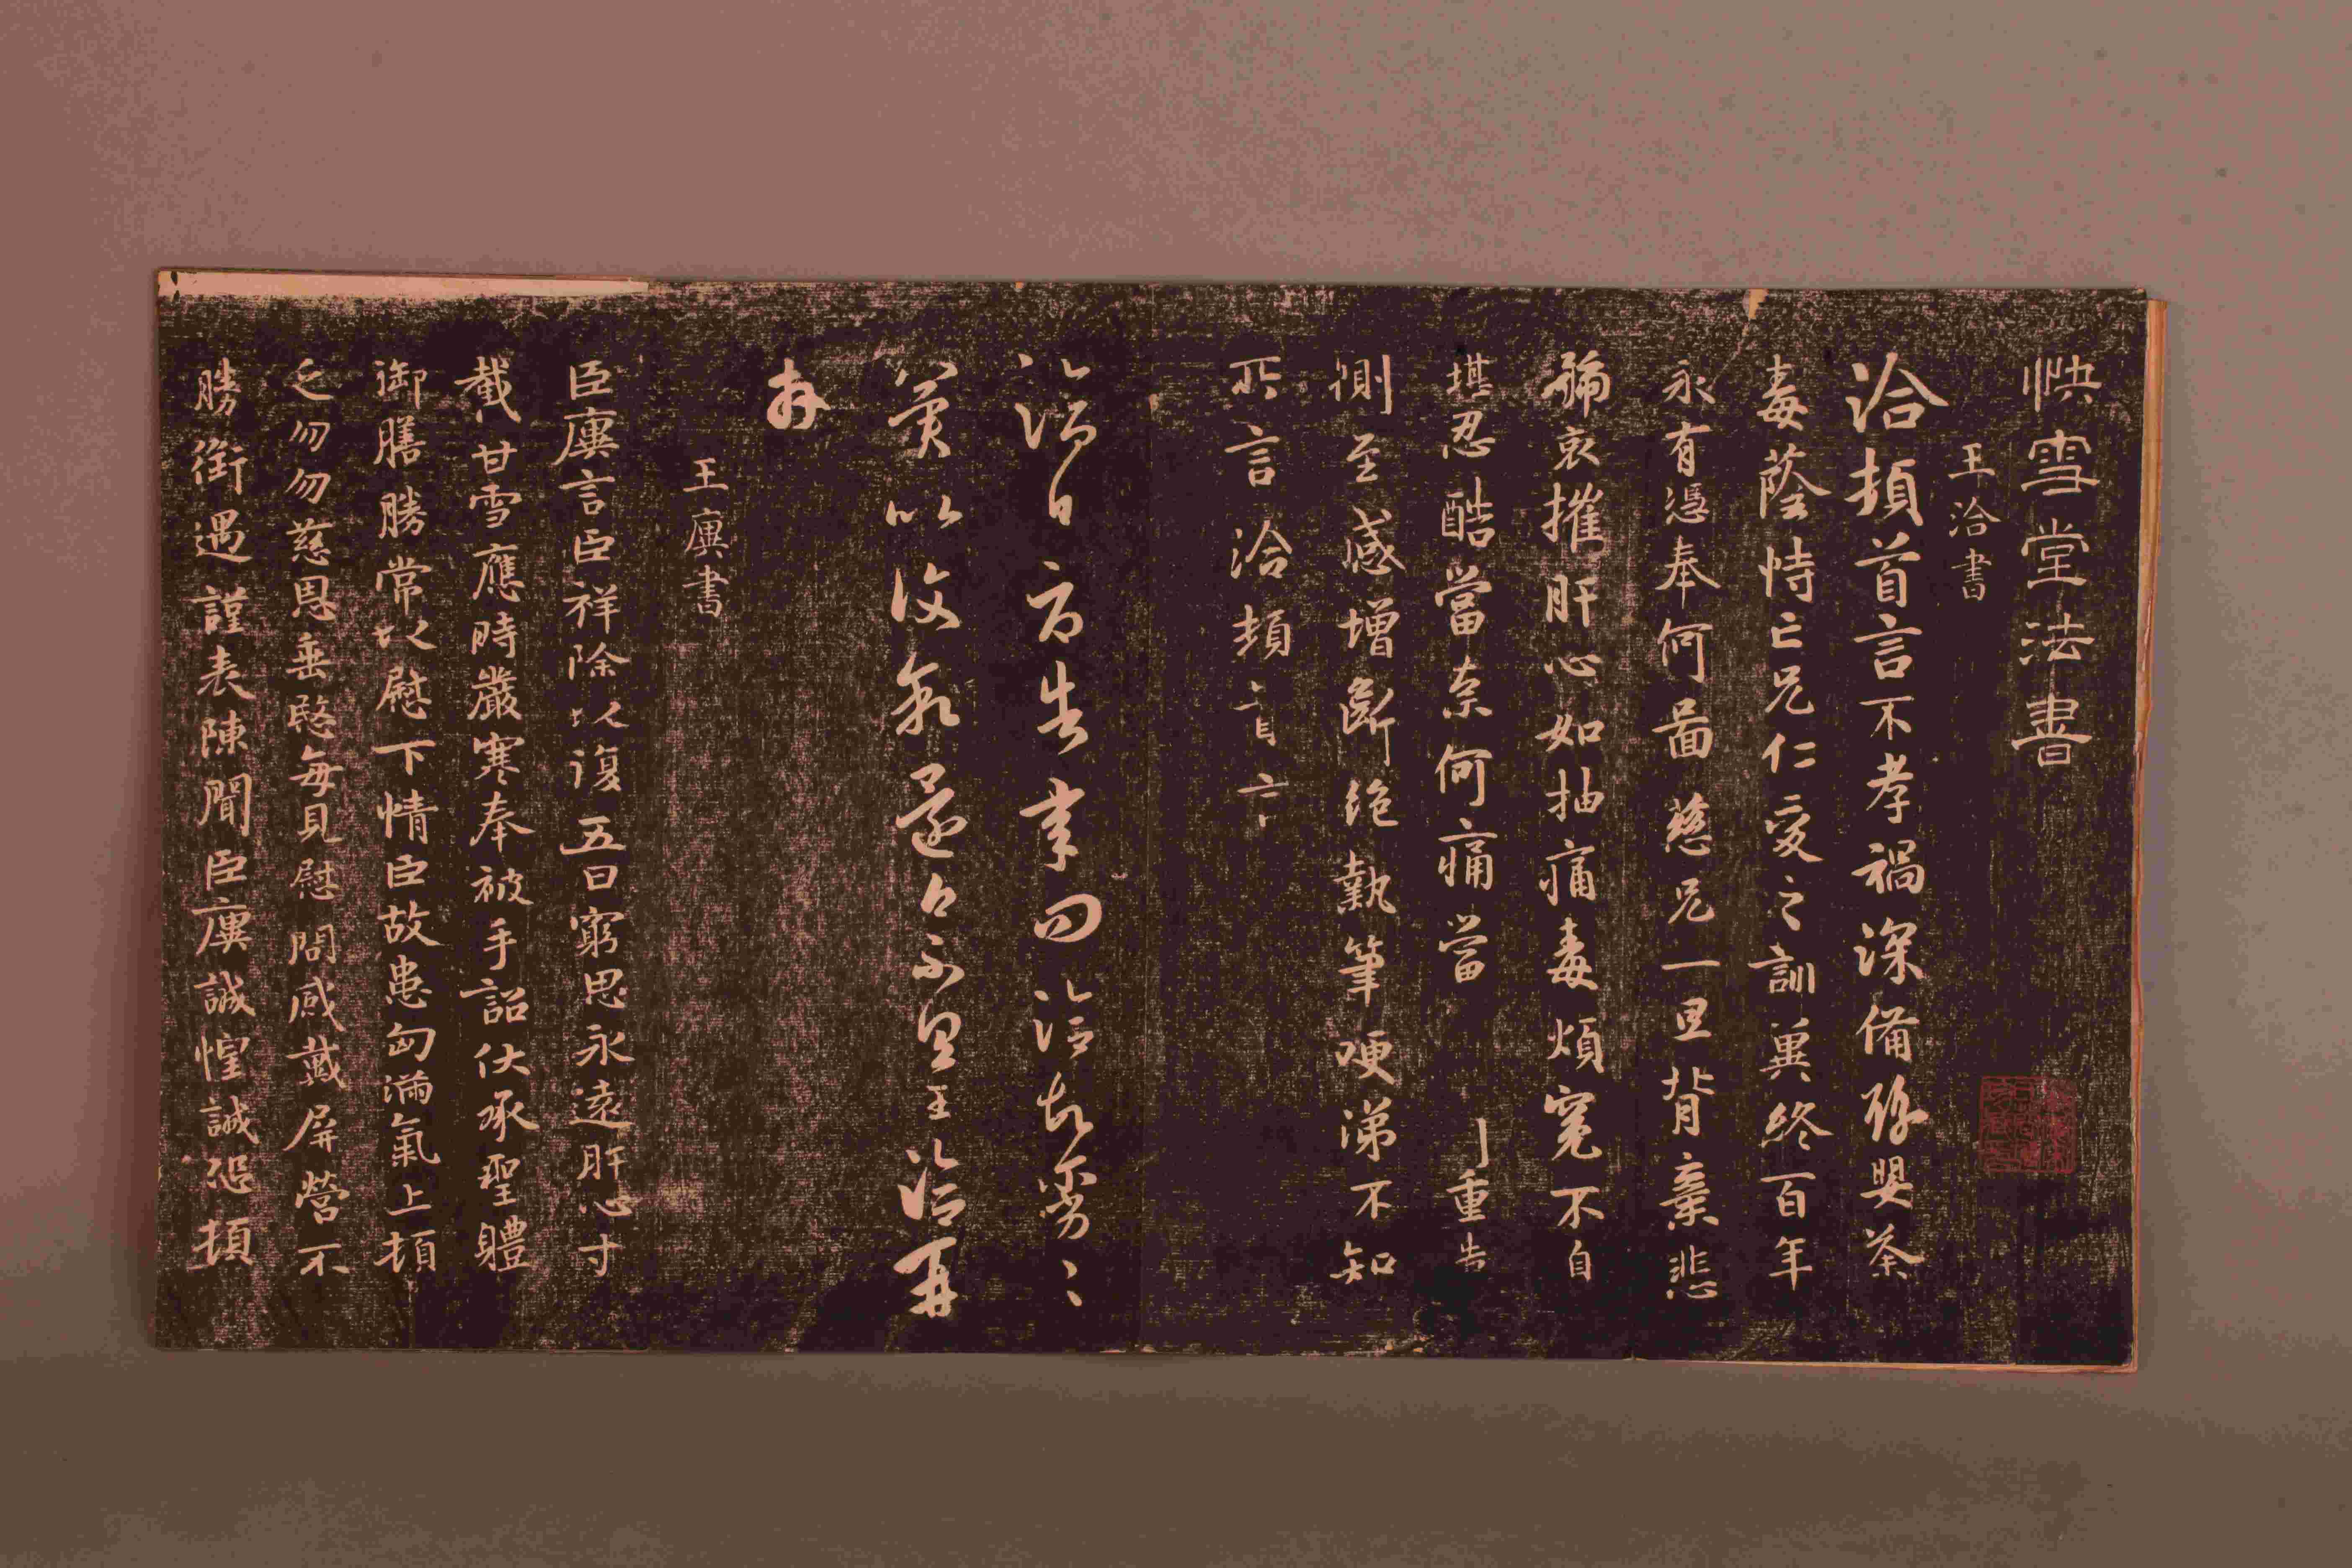 快雪堂法書
王洽書
洽頓首言不孝禍深備豫嬰荼
毒蔭恃亡兄仁愛之訓冀終百年
永有憑奉何啚慈兄一旦背棄悲
號哀摧肝心如抽痛毒煩冤不自
堪忍酷當奈何痛當重告
惻至感增斷絕執筆哽涕不知
所言洽頓首言
洽白方告承問洽故劣々
冀以復知還白不具王洽再
拜
王廙書
臣廙言臣祥除以復五日窮思永遠肝心寸
截甘雪應時嚴寒奉被手詔伏承聖體
御膳勝常以慰下情臣故患匈滿氣上頓
乏勿勿慈恩垂愍每見慰問感戴屏營不
勝銜遇謹表陳聞臣廙誠惶誠恐頓